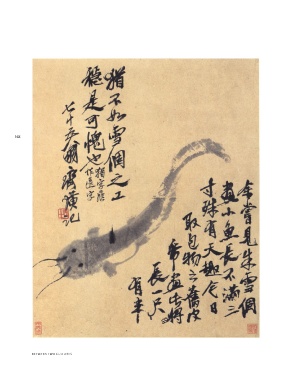 余嘗見朱雪個
畫小魚長不滿三
寸殊有天趣今日
取包物之舊皮
帋畫此將
長一尺
有半
猶不如雪個之工
穩是可愧也
猶字應
作遠字
七十五翁齊璜記